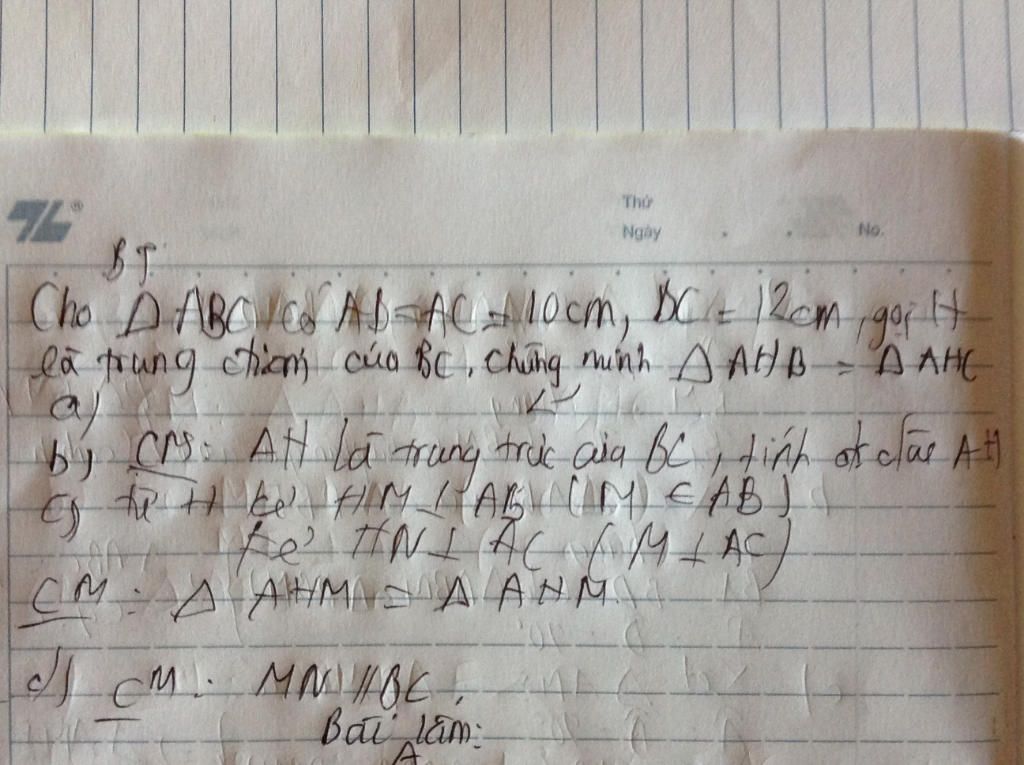 Thứ
Ngày
No.
BT
Cho Δ ABC có AB = AC = 10cm, BC = 12cm, gọi H
là trung điểm của BC, chứng minh Δ AHB = Δ AHC
a)
b) CM: AH là trung trực của BC, tính độ dài AH
c) từ H kẻ HM ⊥ AB (M ∈ AB)
kẻ HN ⊥ AC (M ⊥ AC)
CM: Δ AHM = Δ AHM
d) CM: MN // BC.
Bài làm:
A